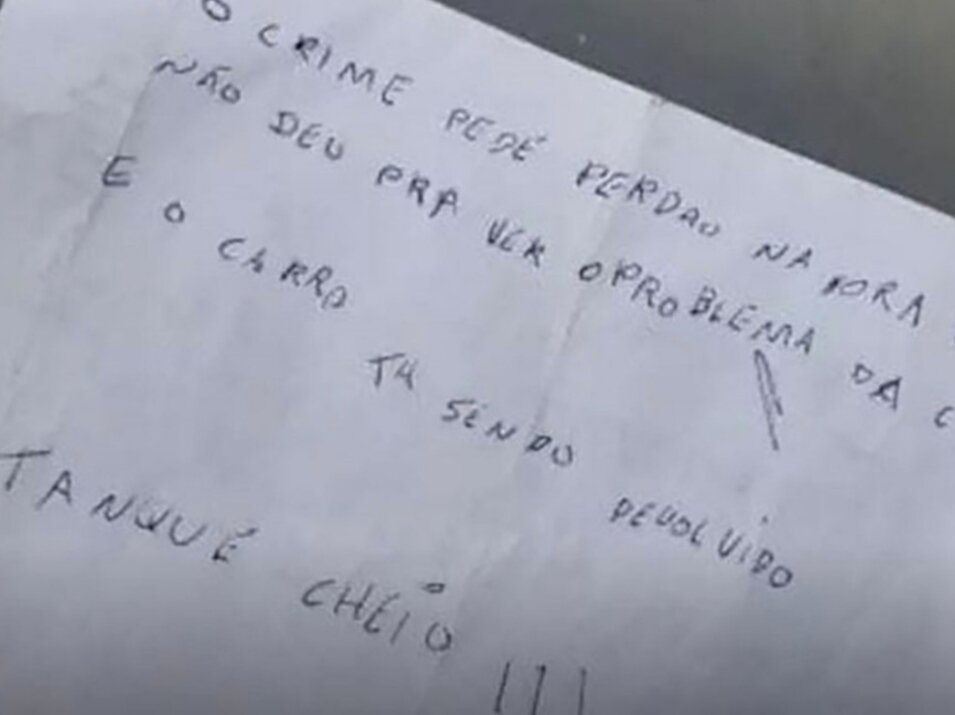 O CRIME PEDÉ PERDAO NA HORA
NÃO DEU PRA VER O PROBLEMA DA C
E O CARRO TA SENDO DEVOLVIDO
TANQUÉ CHEIO !!!